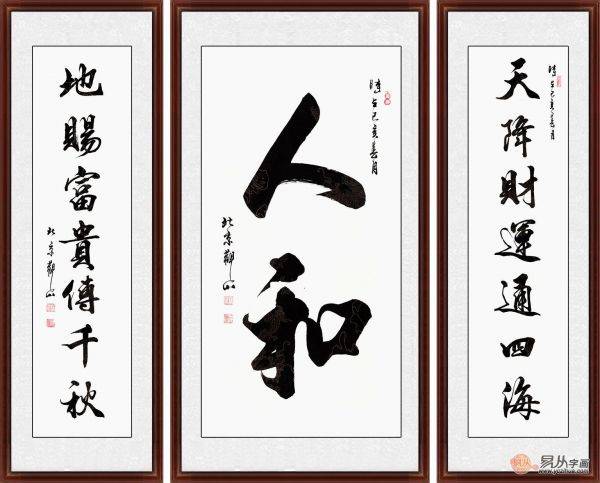 天降財運通四海
時在己亥
人和
時在己亥
北京觀山
地賜富貴傳千秋
北京觀山
易从字画
www.yczihua.com